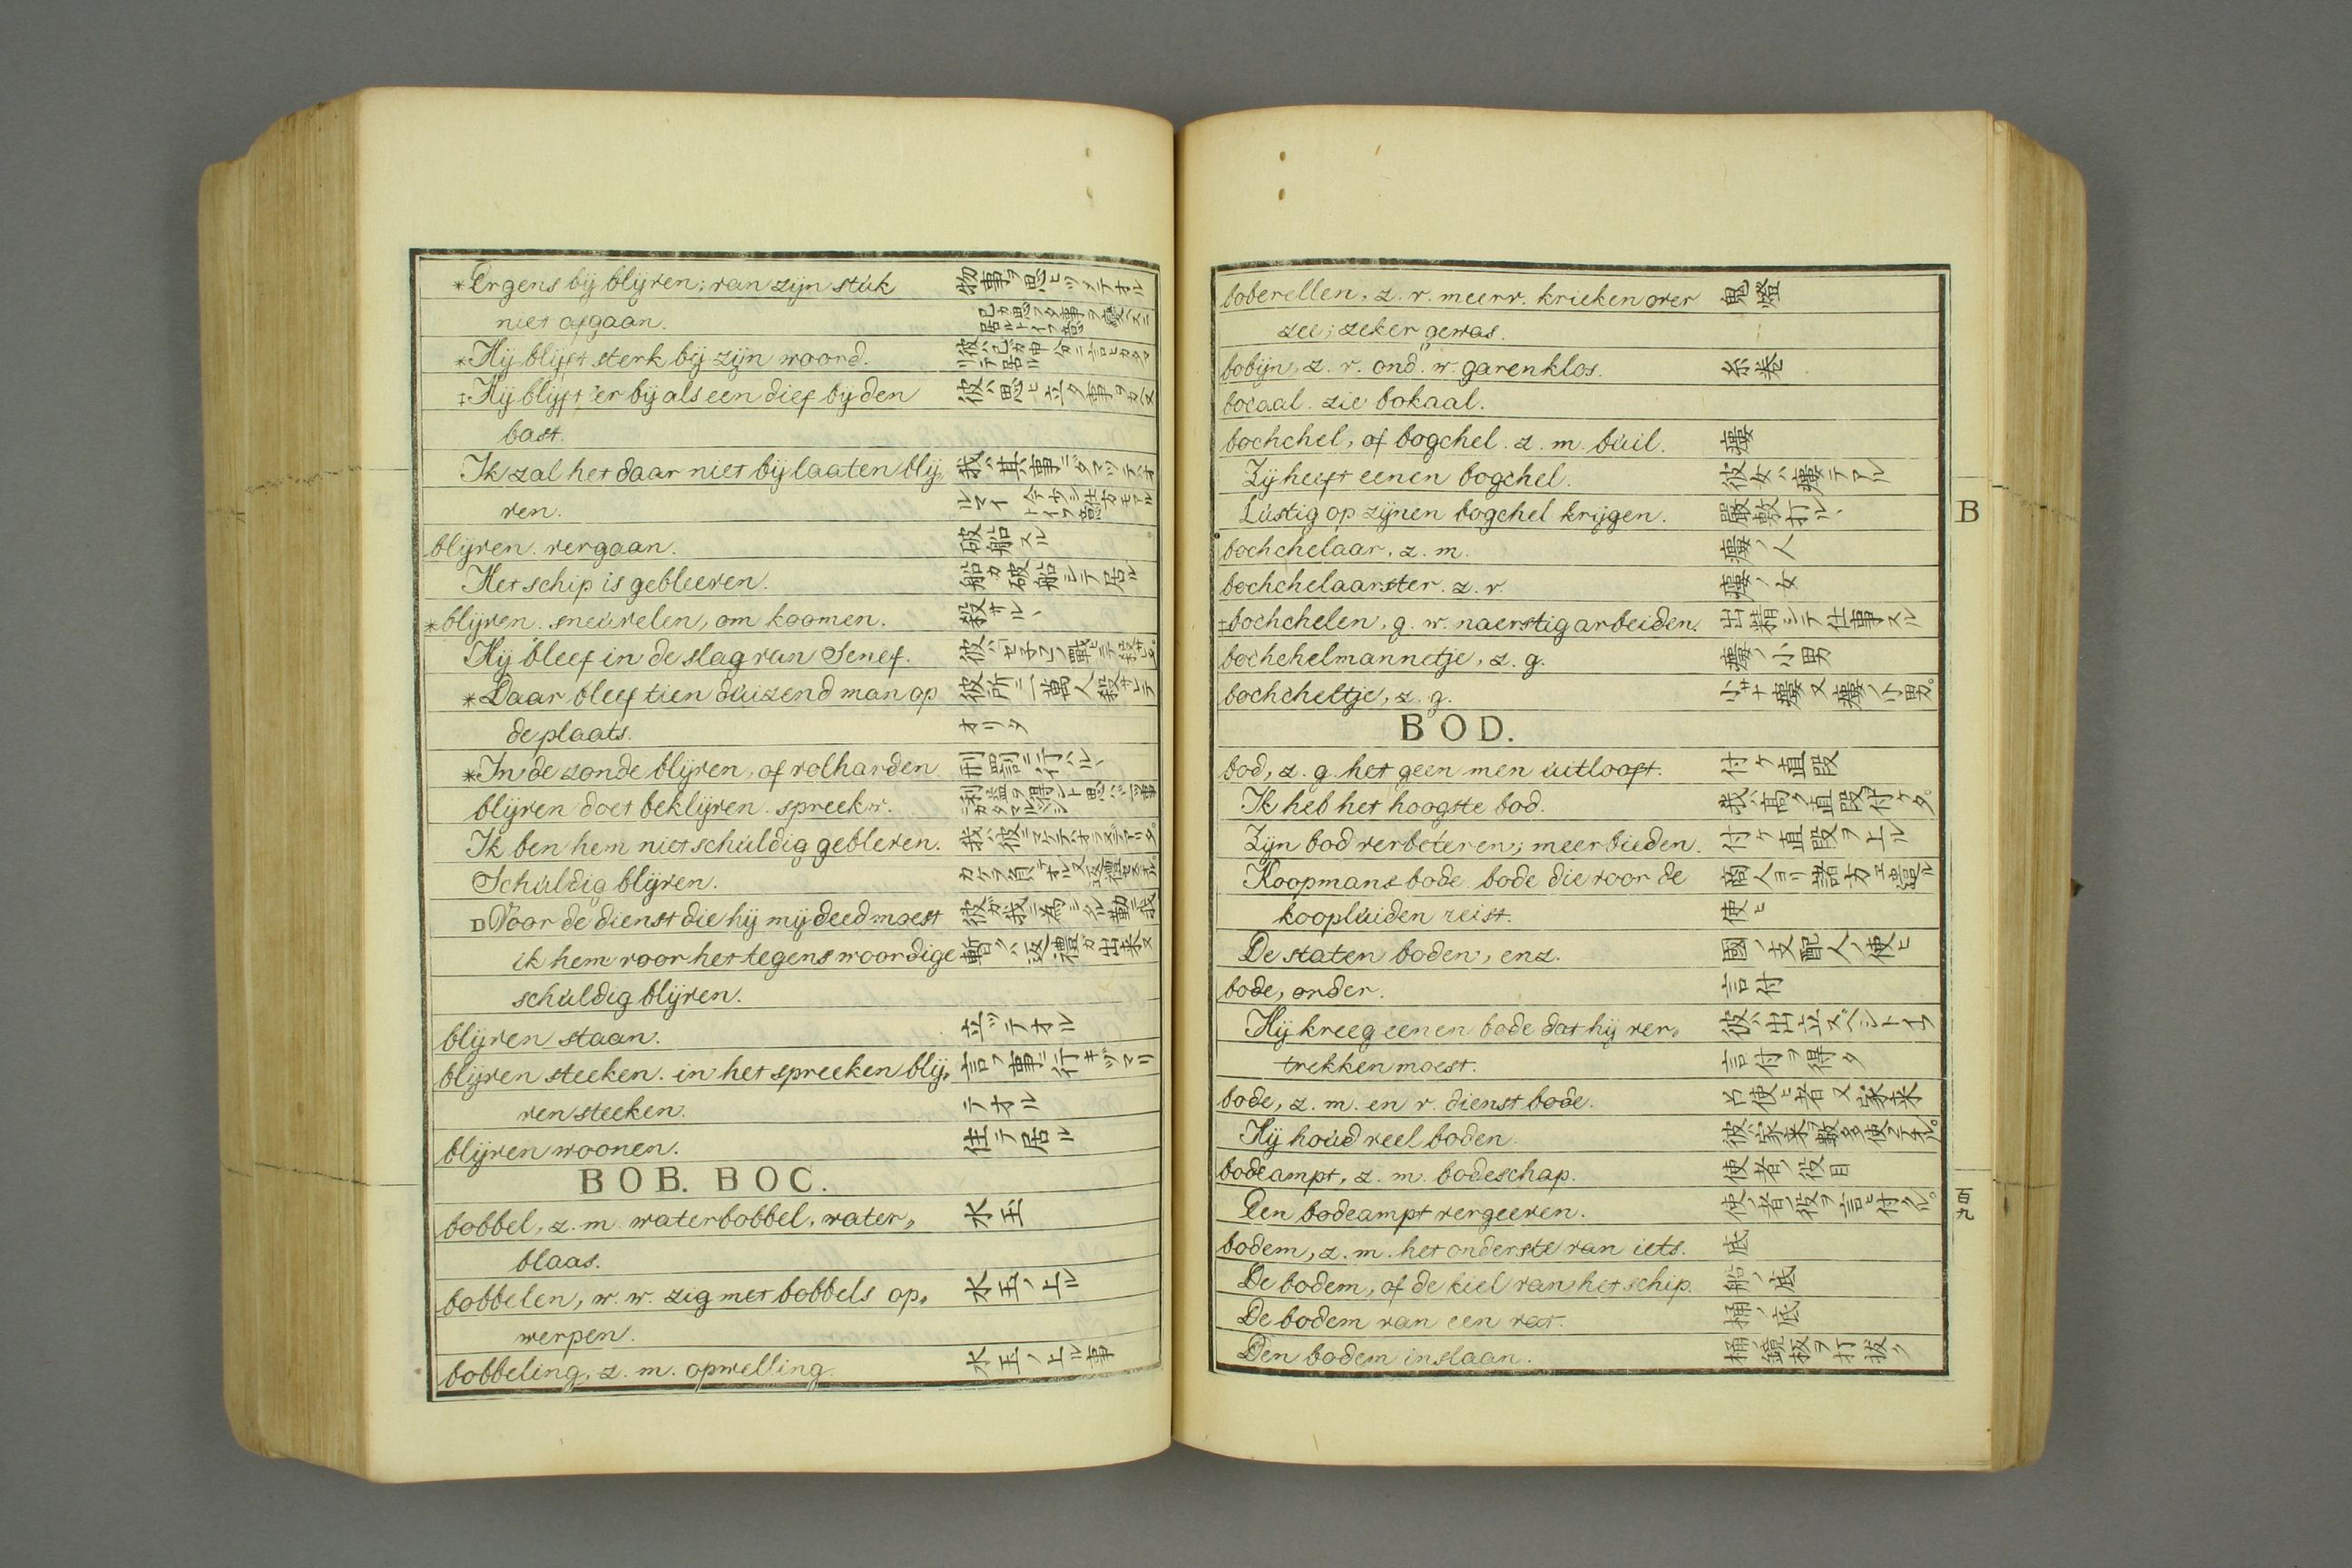 *Ergens bij blijven; van zijn stúk 物事ヲ思ヒツメテオル
niet afgaan. 己カ思フタ事ヲ変ヘスニ居ルトイフ意
*Hij blijft sterk bij zijn woord. 彼ハ己ガ申分ニ言ヒカタマリテ居ル
‡Hij blijft 'er bij als een dief bij den 彼ハ思ヒ立タ事ヲカヘヌ
bast.
Ik zal het daar niet bij laaten blij„ 我ハ其事ニダマツテオ
ven. ルマイ 今少シ仕方モアルトイフ意
blijven. vergaan. 破船スル
Het schip is gebleeven. 船カ破船シテ居ル
*blijven. sneúvelen, om koomen. 殺サルヽ
Hij bleef in de slag van Senef. 彼ハセネフノ戰ヒテ殺サレタ
*Daar bleef tien dúizend man op 彼所ニ一萬人殺サレテ
de plaats. オリタ
*In de zonde blijven, of volharden 刑罰ニ行ハルヽ
blijven doet beklijven. spreekw. 利益ヲ得ント思ハヽ事ニカタマルベシ
Ik ben hem niet schúldig gebleven. 我ハ彼ニマケテハオラズテアリタ。
Schúldig blijven. カケヲ負テオル又返禮セズオル。
D Voor de dienst die hij mij deed moest 彼ガ我ニ為シタル勤ニ我
ik hem voor het tegenswoordige 暫クハ返禮ガ出来ヌ
schúldig blijven.
blijven staan. 立ツテオル
blijven steeken. in het spreeken blij„ 言フ事ニ行キヅマリ
ven steeken. テオル
blijven woonen. 住テ居ル
BOB. BOC.
bobbel, z. m. waterbobbel, water„ 水玉
blaas.
bobbelen, w. w. zig met bobbels op„ 水玉ノ上ル
werpen.
bobbeling, z. m. opwelling. 水玉ノ上ル事
boberellen, z. v. meerv. krieken over 鬼燈
zee; zeker gewas.
bobijn, z. v. ond. w. garenklos. 糸巻
bocaal. zie bokaal.
bochchel, of bogchel. z. m. búil. 瘻
Zij heeft eenen bogchel. 彼女ハ瘻テアル
Lústig op zijnen bogchel krijgen. 嚴敷打ルヽ
bochchelaar, z. m. 瘻ノ人
bochchelaarster. z. v. 瘻ノ女
‡bochchelen, g. w. naerstig arbeiden. 出精シテ仕事スル
bochchelmannetje, z. g. 瘻ノ小男
bochcheltje, z. g. 小サナ瘻又瘻ノ小男。
BOD.
bod, z. g. het geen men úitlooft. 付ケ直段
Ik heb het hoogste bod. 我ハ高ク直段ヲ付ケタ。
Zijn bod verbeteren; meer bieden. 付ケ直段ヲ上ル
Koopmans bode. bode die voor de 商人ヨリ諸方エ遣ル
kooplúiden reist. 使ヒ
De staten boden, enz. 國ノ支配人ノ使ヒ
bode, order. 言付
Hij kreeg eenen bode dat hij ver„ 彼ハ出立スベシトイフ
trekken moest. 言付ヲ得タ
bode, z. m. en v. dienst bode. 召使ヒ者又家来
Hij houd veel boden. 彼ハ家来ヲ數多使テオル。
bodeampt, z. m. bodeschap. 使者ノ役目
Een bodeampt vergeeven. 使者ノ役ヲ言ヒ付クル。
bodem, z. m. het onderste van iets. 底
De bodem, of de kiel van het schip. 船ノ底
De bodem van een vat. 桶ノ底
Den bodem inslaan. 桶ノ鏡板ヲ打拔ク
B
百九